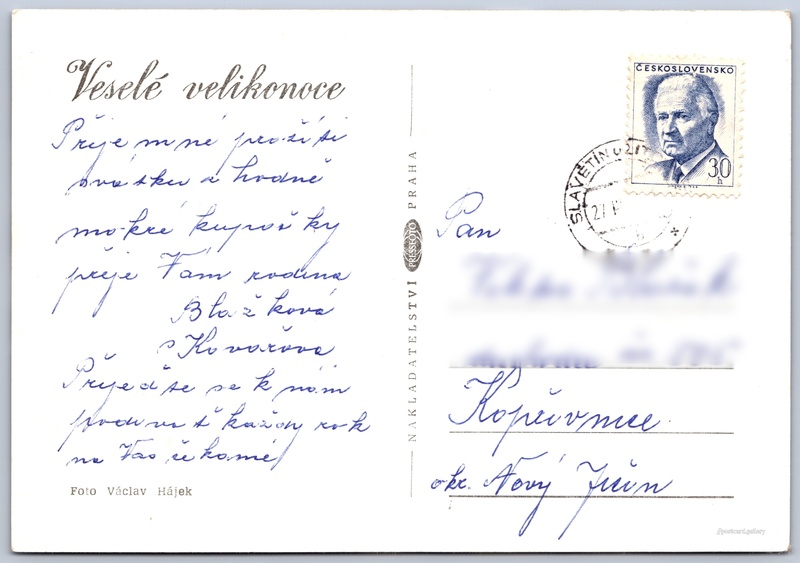 Veselé velikonoce
Příjemné prožití
svátku a hodně
mokré kupačky
přeje Vám rodina
Blažková
a Kovařova
Přijeďte se k nám
podívat každý rok
na Vas čekamé
Foto Václav Hájek
NAKLADATELSTVÍ PRESSFOTO PRAHA
ČESKOSLOVENSKO
30
h
SLAVĚTÍN U LIT
27
Pan
Kopřivnice
okr. Nový Jičín
@postcard.gallery